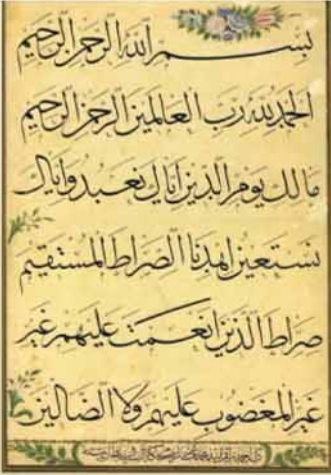 بسم الله الرحمن الرحيم
الحمد لله رب العالمين الرحمن الرحيم
مالك يوم الدين اياك نعبد واياك
نستعين اهدنا الصراط المستقيم
صراط الذين انعمت عليهم غير
غير المغضوب عليهم ولا الضالين